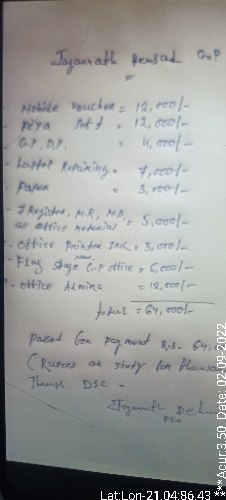 Jagannath Prasad G.P
- Mobile Voucher = 12,000/-
= 12,000/-
- G.P. D.P. = 4,000/-
- Laptop Repairing = 7,000/-
- Paper = 3,000/-
- 7 Register, M.R, M.B,
office material = 5,000/-
- Office Printer INK = 3,000/-
- Flag Stage Near G.P office = 6,000/-
- Office Almira = 12,000/-
total = 64,000/-
Passed for payment R.s. 64,
(Rupees sixty
DSC.
Jagannath
PEO
Lat:Lon-21.04:86.43
***Acur 3.50 Date: 02-09-2022